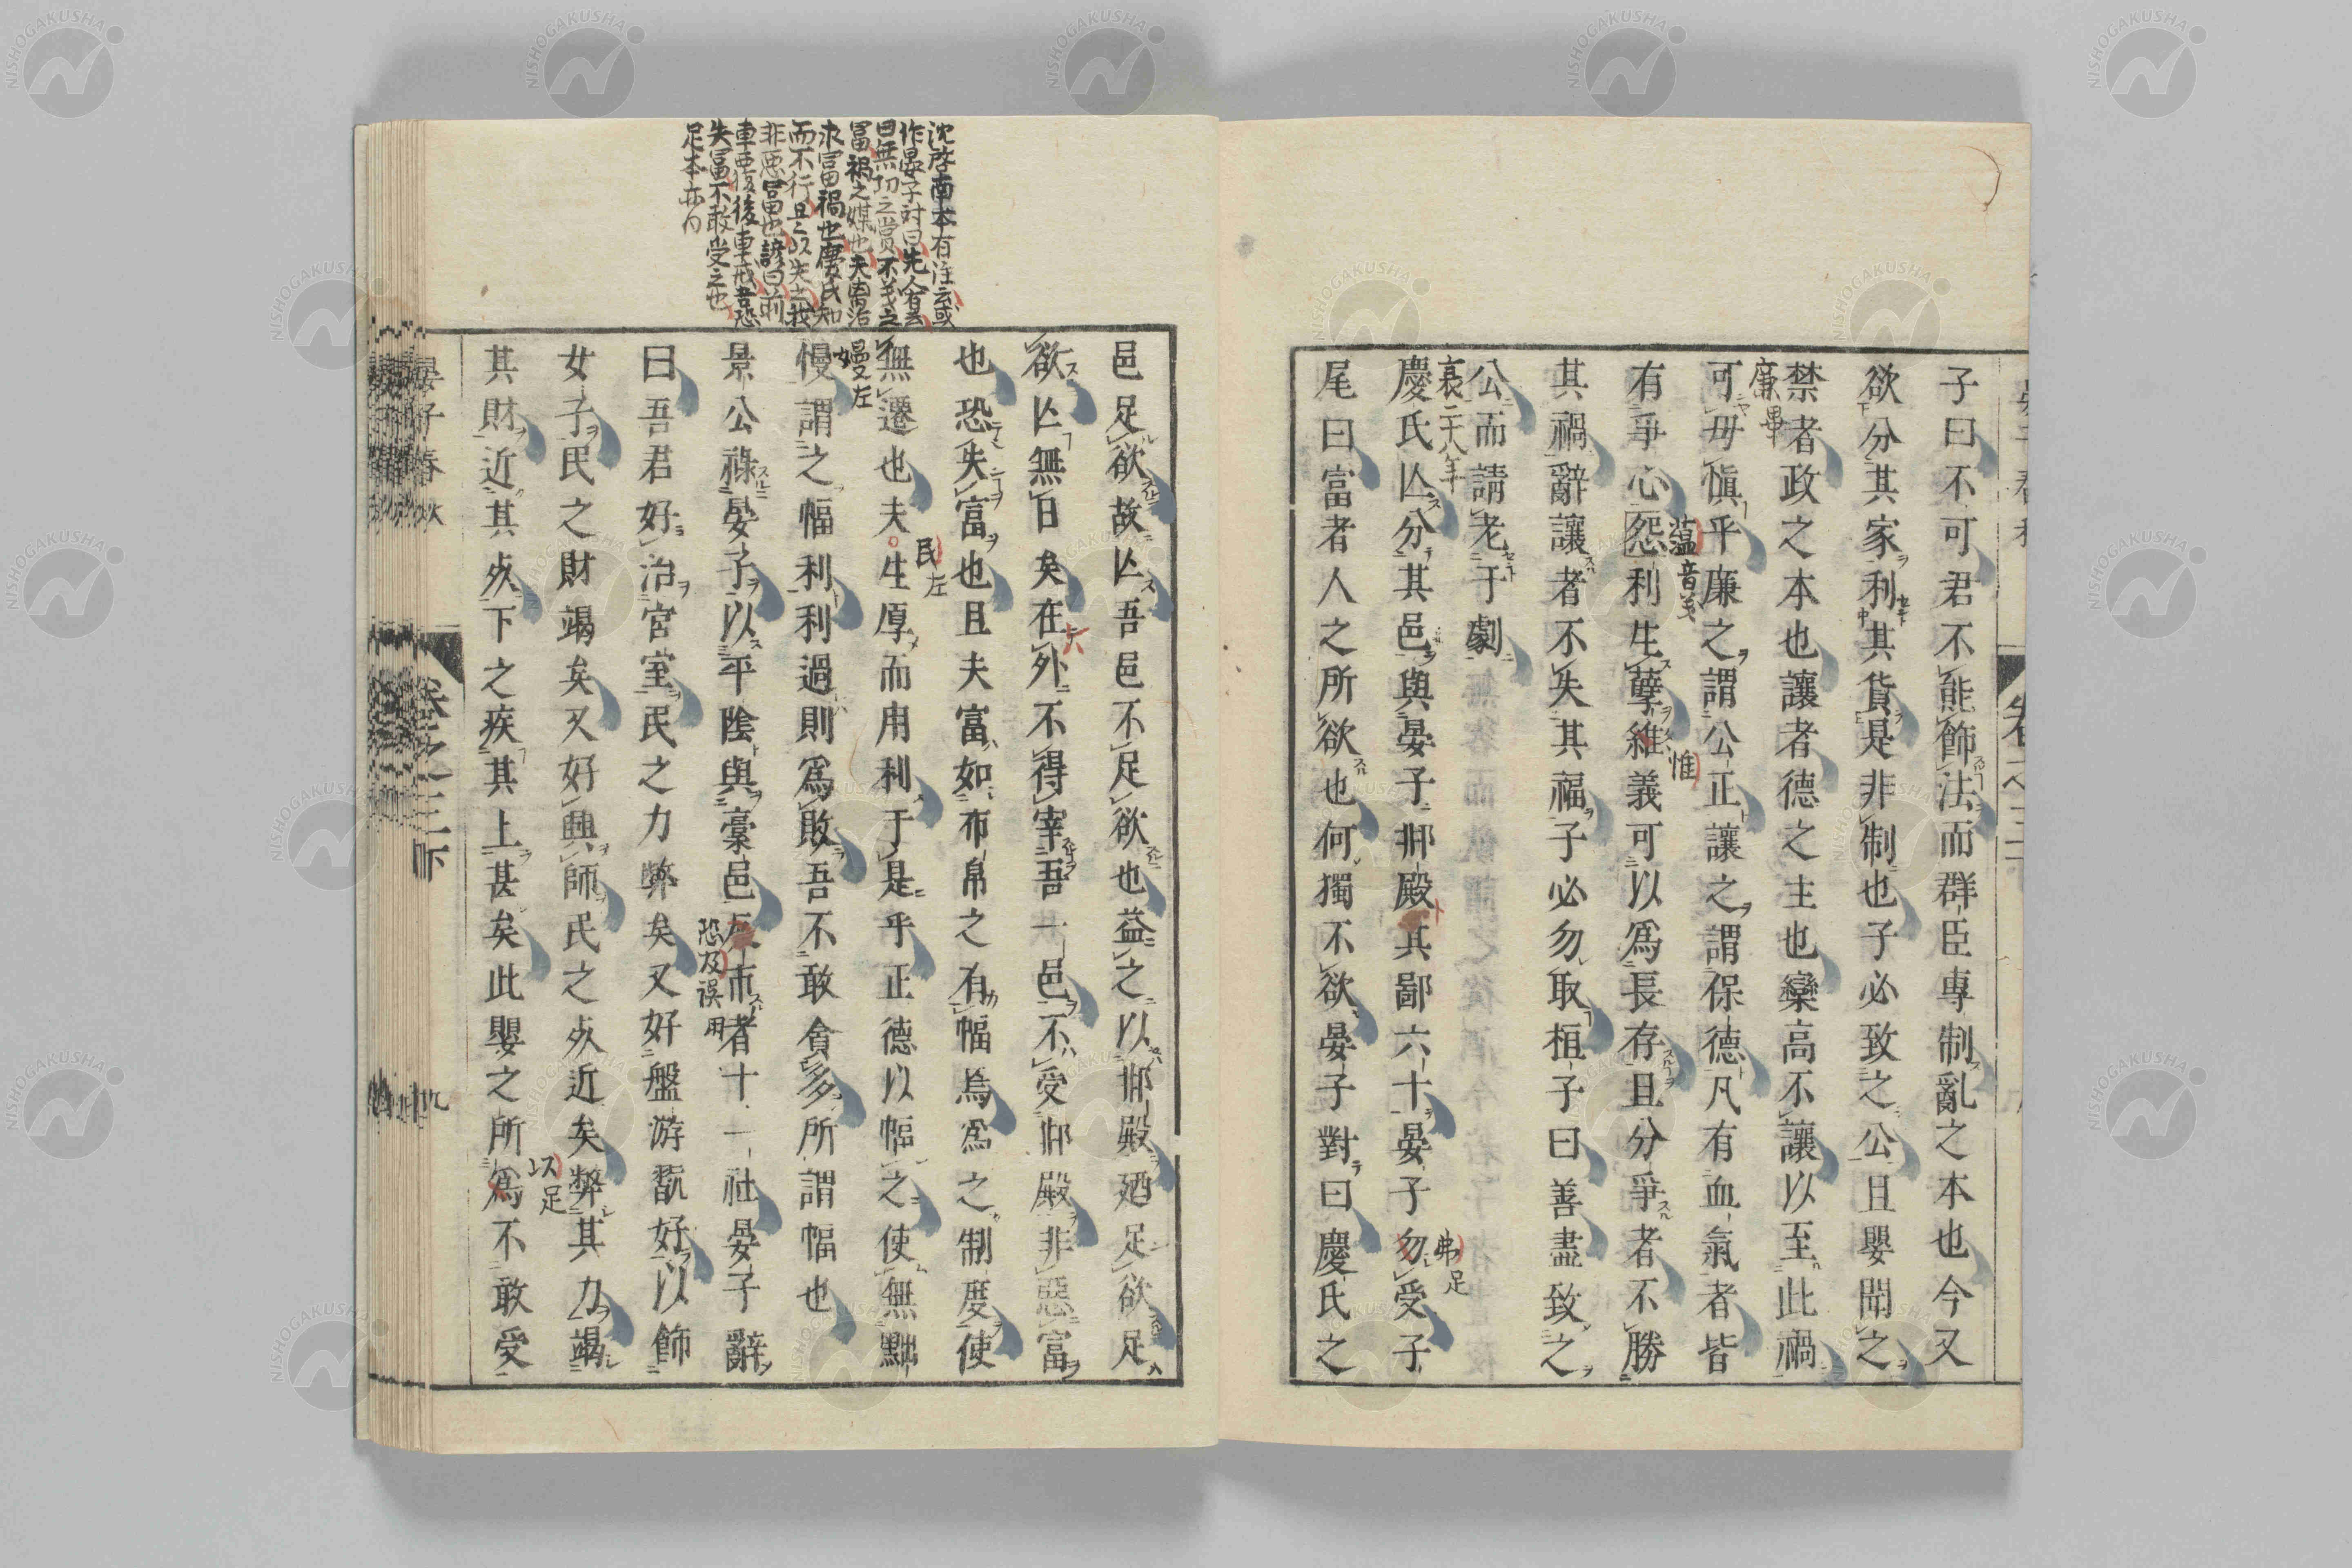 子曰不可君不能飾法而群臣專制亂之本也今又
欲分其家利其貨是非制也子必致之公且嬰聞之
禁者政之本也讓者德之主也欒高不讓以至此禍
廉畢
可毋愼乎廉之謂公正讓之謂保德凡有血氣者皆
蘊音義
惟
有爭心怨利生孽維義可以爲長存且分爭者不勝
其禍辭讓者不失其福子必勿取桓子曰善盡致之
公而請老于劇
襄二十八年
弗足
慶氏亾分其邑與晏子邶殿其鄙六十晏子勿受子
尾曰富者人之所欲也何獨不欲晏子對曰慶氏之
沈啓南本有注云或
作晏子対曰先人有言
曰無功之賞不義之
冨禍之媒也夫离治
求冨禍也慶氏知
而不行且以失之我
非悪冨也諺曰前
車覆後車戒吾恐
失冨不敢受之也
足本亦同
邑足欲故亾吾邑不足欲也益之以邶殿廼足欲足
欲亾無日矣在外不得宰吾一邑不受邶殿非惡富
也恐失富也且夫富如布帛之有幅焉爲之制度使
民左
無遷也夫生厚而用利于是乎正德以幅之使無黜
嫚左
慢謂之幅利利過則爲敗吾不敢貪多所謂幅也
景公祿晏子以平陰與槀邑反市者十一社晏子辭
恐及誤用
曰吾君好治宮室民之力弊矣又好盤游翫好以飾
女子民之財竭矣又好興師民之死近矣弊其力竭
以足
其財近其死下之疾其上甚矣此嬰之所爲不敢受
晏子春秋
卷之三下
九
NISHOGAKUSHA